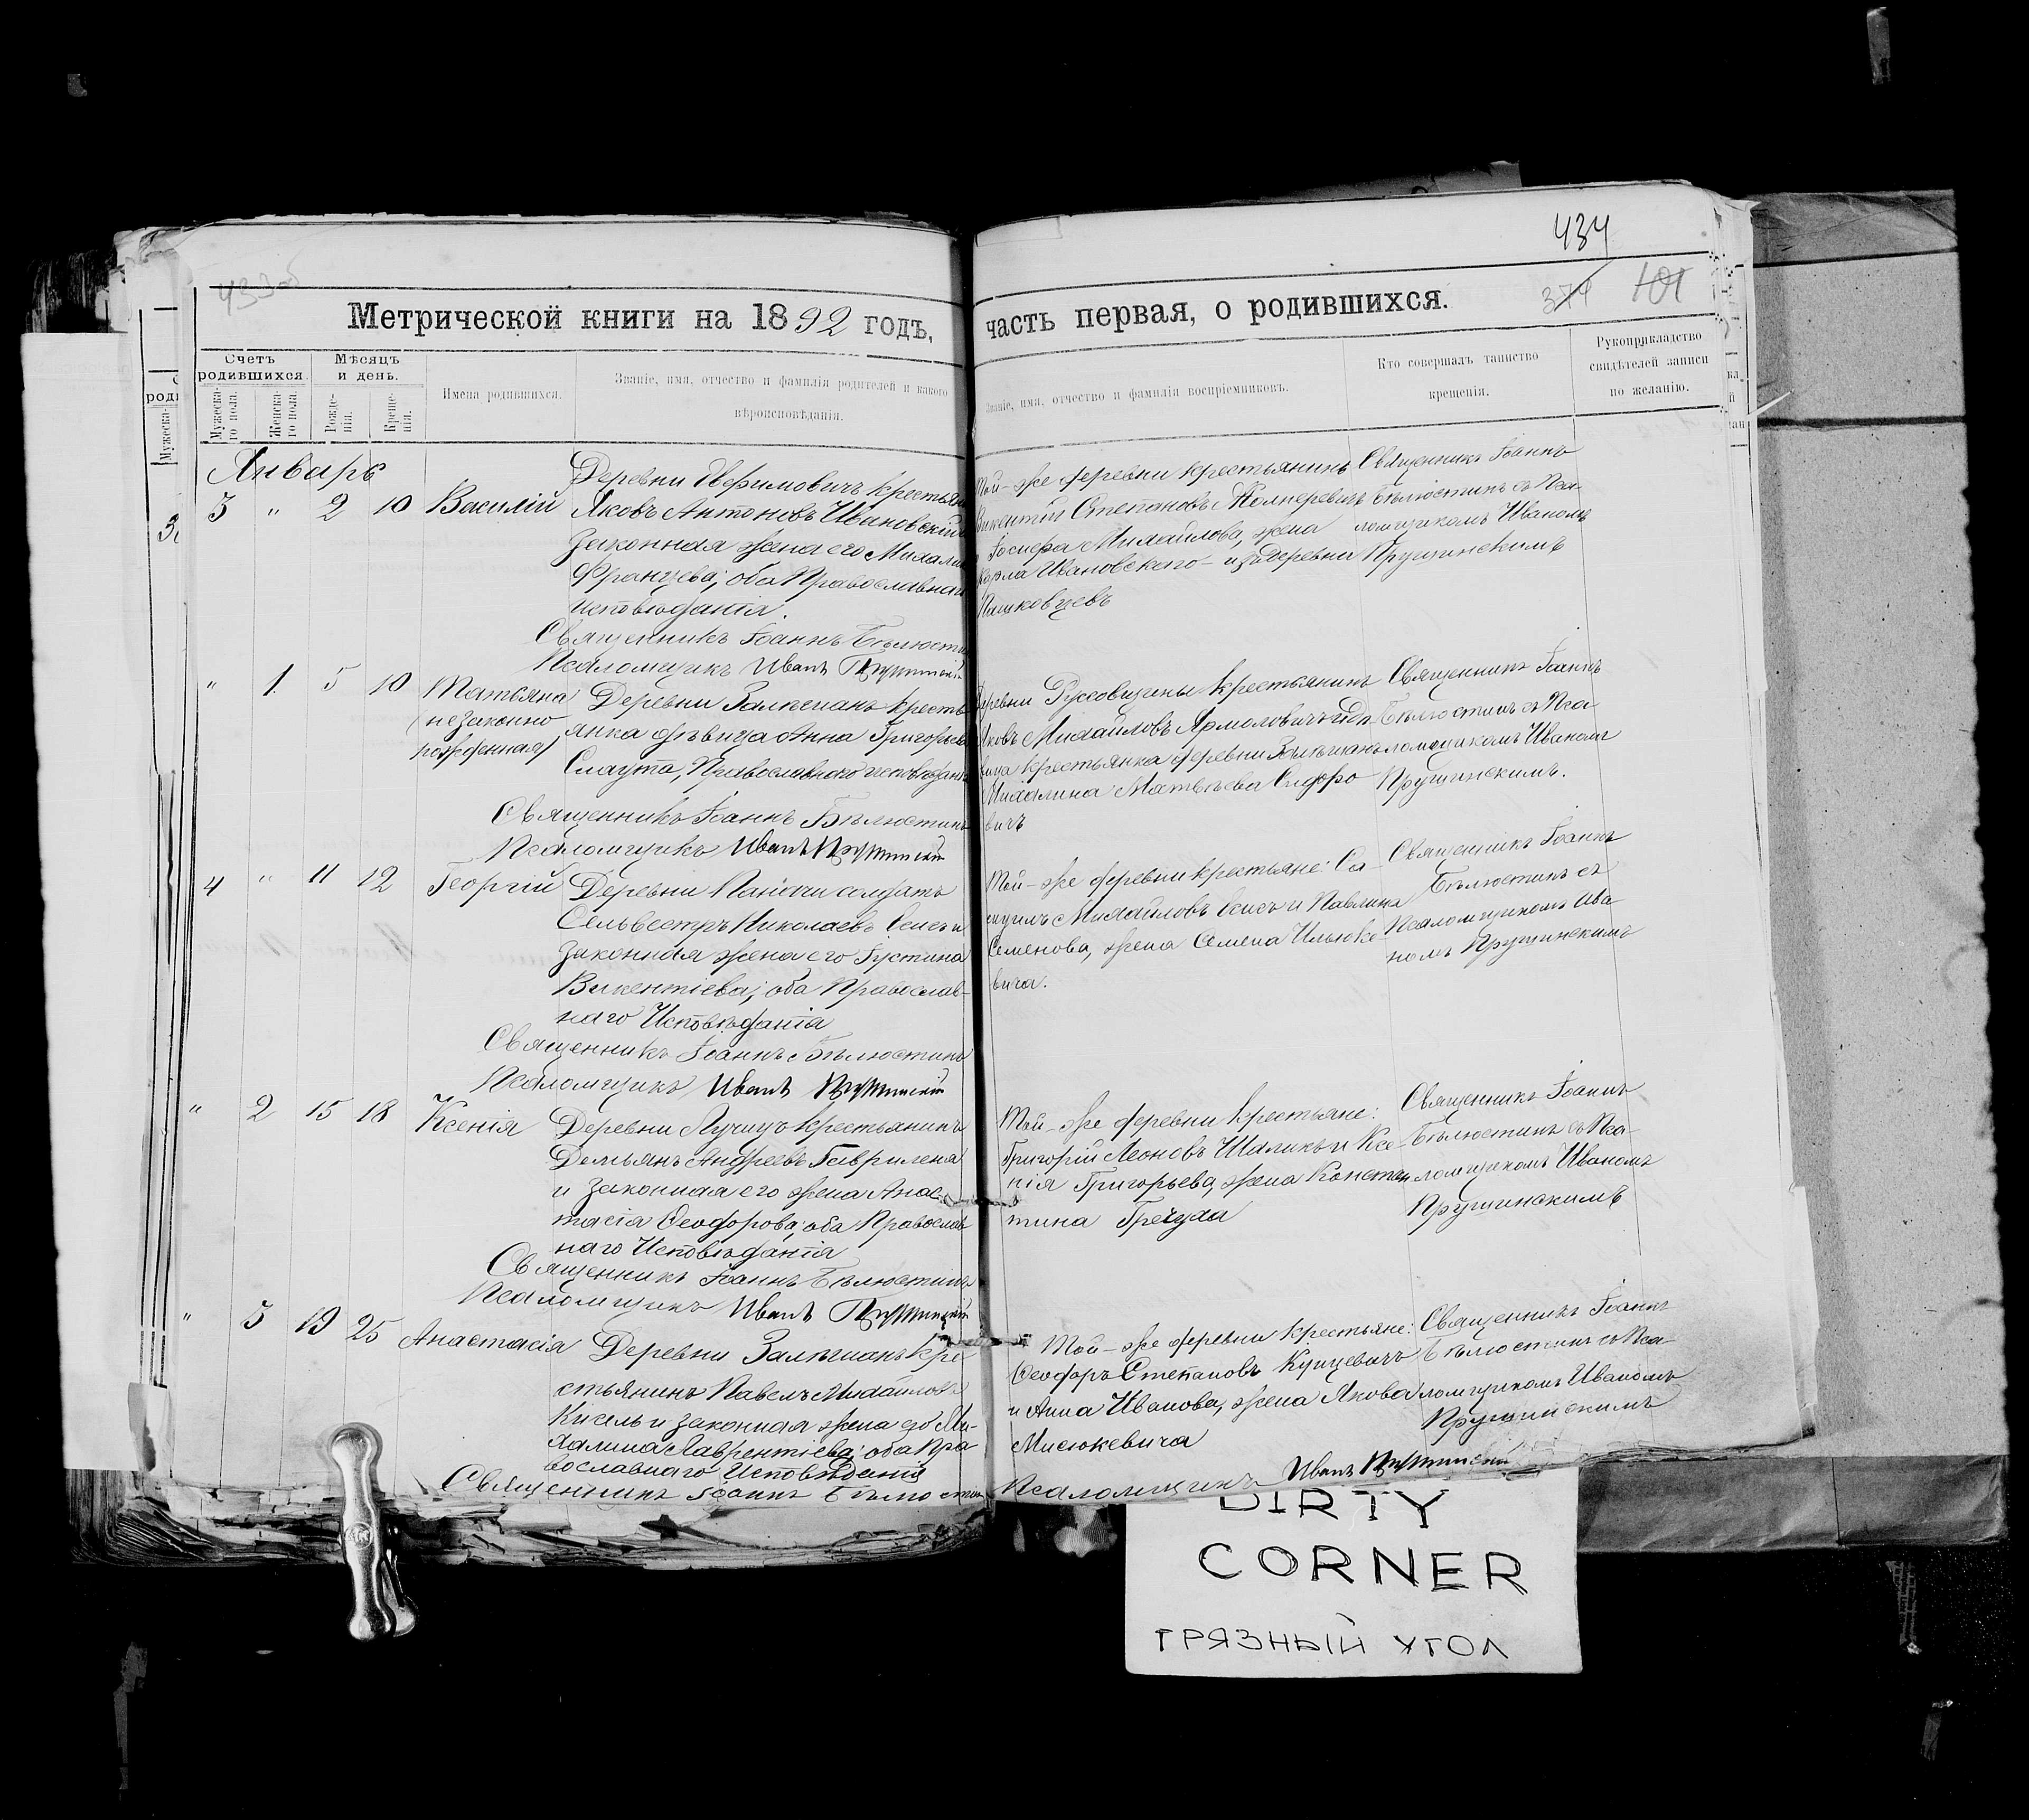 434
433об
374
101
Метрической книги на 1892 годъ,
часть первая, о родившихся.
Счетъ родившихся
Мѣсяцъ и день.
Мужеска-го пола.
Женска-го пола.
Рожде-нія.
Креще-нія.
Имена родившихся.
Званіе, имя, отчество и фамилія родителей и какого
вѣроисповѣданія.
Званіе, имя, отчество и фамилія воспріемниковъ.
Кто совершалъ таинство
крещенія.
Рукоприкладство
свидѣтелей записи
по желанію.
Январь
3 " 2 10 Василій
Деревни Евфимовичъ крестьян
Яковъ Антоновъ Ивановскій
законная жена его Михали
Францева; оба Православнаг
исповѣданія.
Священникъ Іоаннъ Бѣлюсти
Псаломщикъ Иванъ Прушинскій
Той-же деревни крестьянинъ
Викентій Степановъ
Іосифа Михайлова, жена
Карла Ивановскаго - изъ деревни
Пашковцевъ
Священникъ Іоаннъ
Бѣлюстинъ съ Пса-
ломщикомъ Иваномъ
Прушинскимъ
" 1. 5 10 Татьяна
(незаконно
рожденная)
Деревни Залѣшанъ кресть
янка дѣвица Анна Григорьева
Слаута, Православнаго исповѣдані
Священникъ Іоаннъ Бѣлюстинъ
Псаломщикъ Иванъ Прушинскій
Деревни Руссовщины крестьянинъ
Яковъ Михайловъ Ярмоловичъ и дѣ-
вица крестьянка деревни Залѣшанъ
Михалина Матвѣева Сидоро
вичъ
Священникъ Іоаннъ
Бѣлюстинъ съ Пса-
ломщикомъ Иваномъ
Прушинскимъ.
4 " 11 12 Георгій
Деревни солдатъ
Сельвестръ Николаевъ и
законная жена его Іустина
Викентіева; оба Православ-
наго Исповѣданія
Священникъ Іоаннъ Бѣлюстинъ
Псаломщикъ Иванъ Прушинскій
Той-же деревни крестьяне: Са-
муилъ Михайловъ и Павлина
Семенова, жена Семена Ильюке-
вича.
Священникъ Іоаннъ
Бѣлюстинъ съ
Псаломщикомъ Ива-
номъ Прушинскимъ
" 2 15 18 Ксенія
Деревни Лучицъ крестьянинъ
Демьянъ Андреевъ Гаврилена
и законная его жена Анас-
тасія Ѳеодорова; оба Православ
наго Исповѣданія
Священникъ Іоаннъ Бѣлюстинъ
Псаломщикъ Иванъ Прушинскій
Той-же деревни крестьяне:
Григорій Леоновъ Шаликъ и Ксе-
нія Григорьева, жена Констан
тина Гречуха
Священникъ Іоаннъ
Бѣлюстинъ съ Пса-
ломщикомъ Иваномъ
Прушинскимъ
" 3 19 25 Анастасія
Деревни Залѣшанъ кре-
стьянинъ Павелъ Михайловъ
Кисель и законная жена его Ми-
халина Лаврентіева; оба Пра-
вославнаго Исповѣданія
Священникъ Іоаннъ Бѣлюстин
Той-же деревни крестьяне:
Ѳеодоръ Степановъ Кунцевичъ
и Анна Иванова, жена Якова
Мисюкевича
Священникъ Іоаннъ
Бѣлюстинъ съ Пса-
ломщикомъ Иваномъ
Прушинскимъ
Псаломщикъ Иванъ Прушинскій
DIRTY
CORNER
ГРЯЗНЫЙ УГОЛ